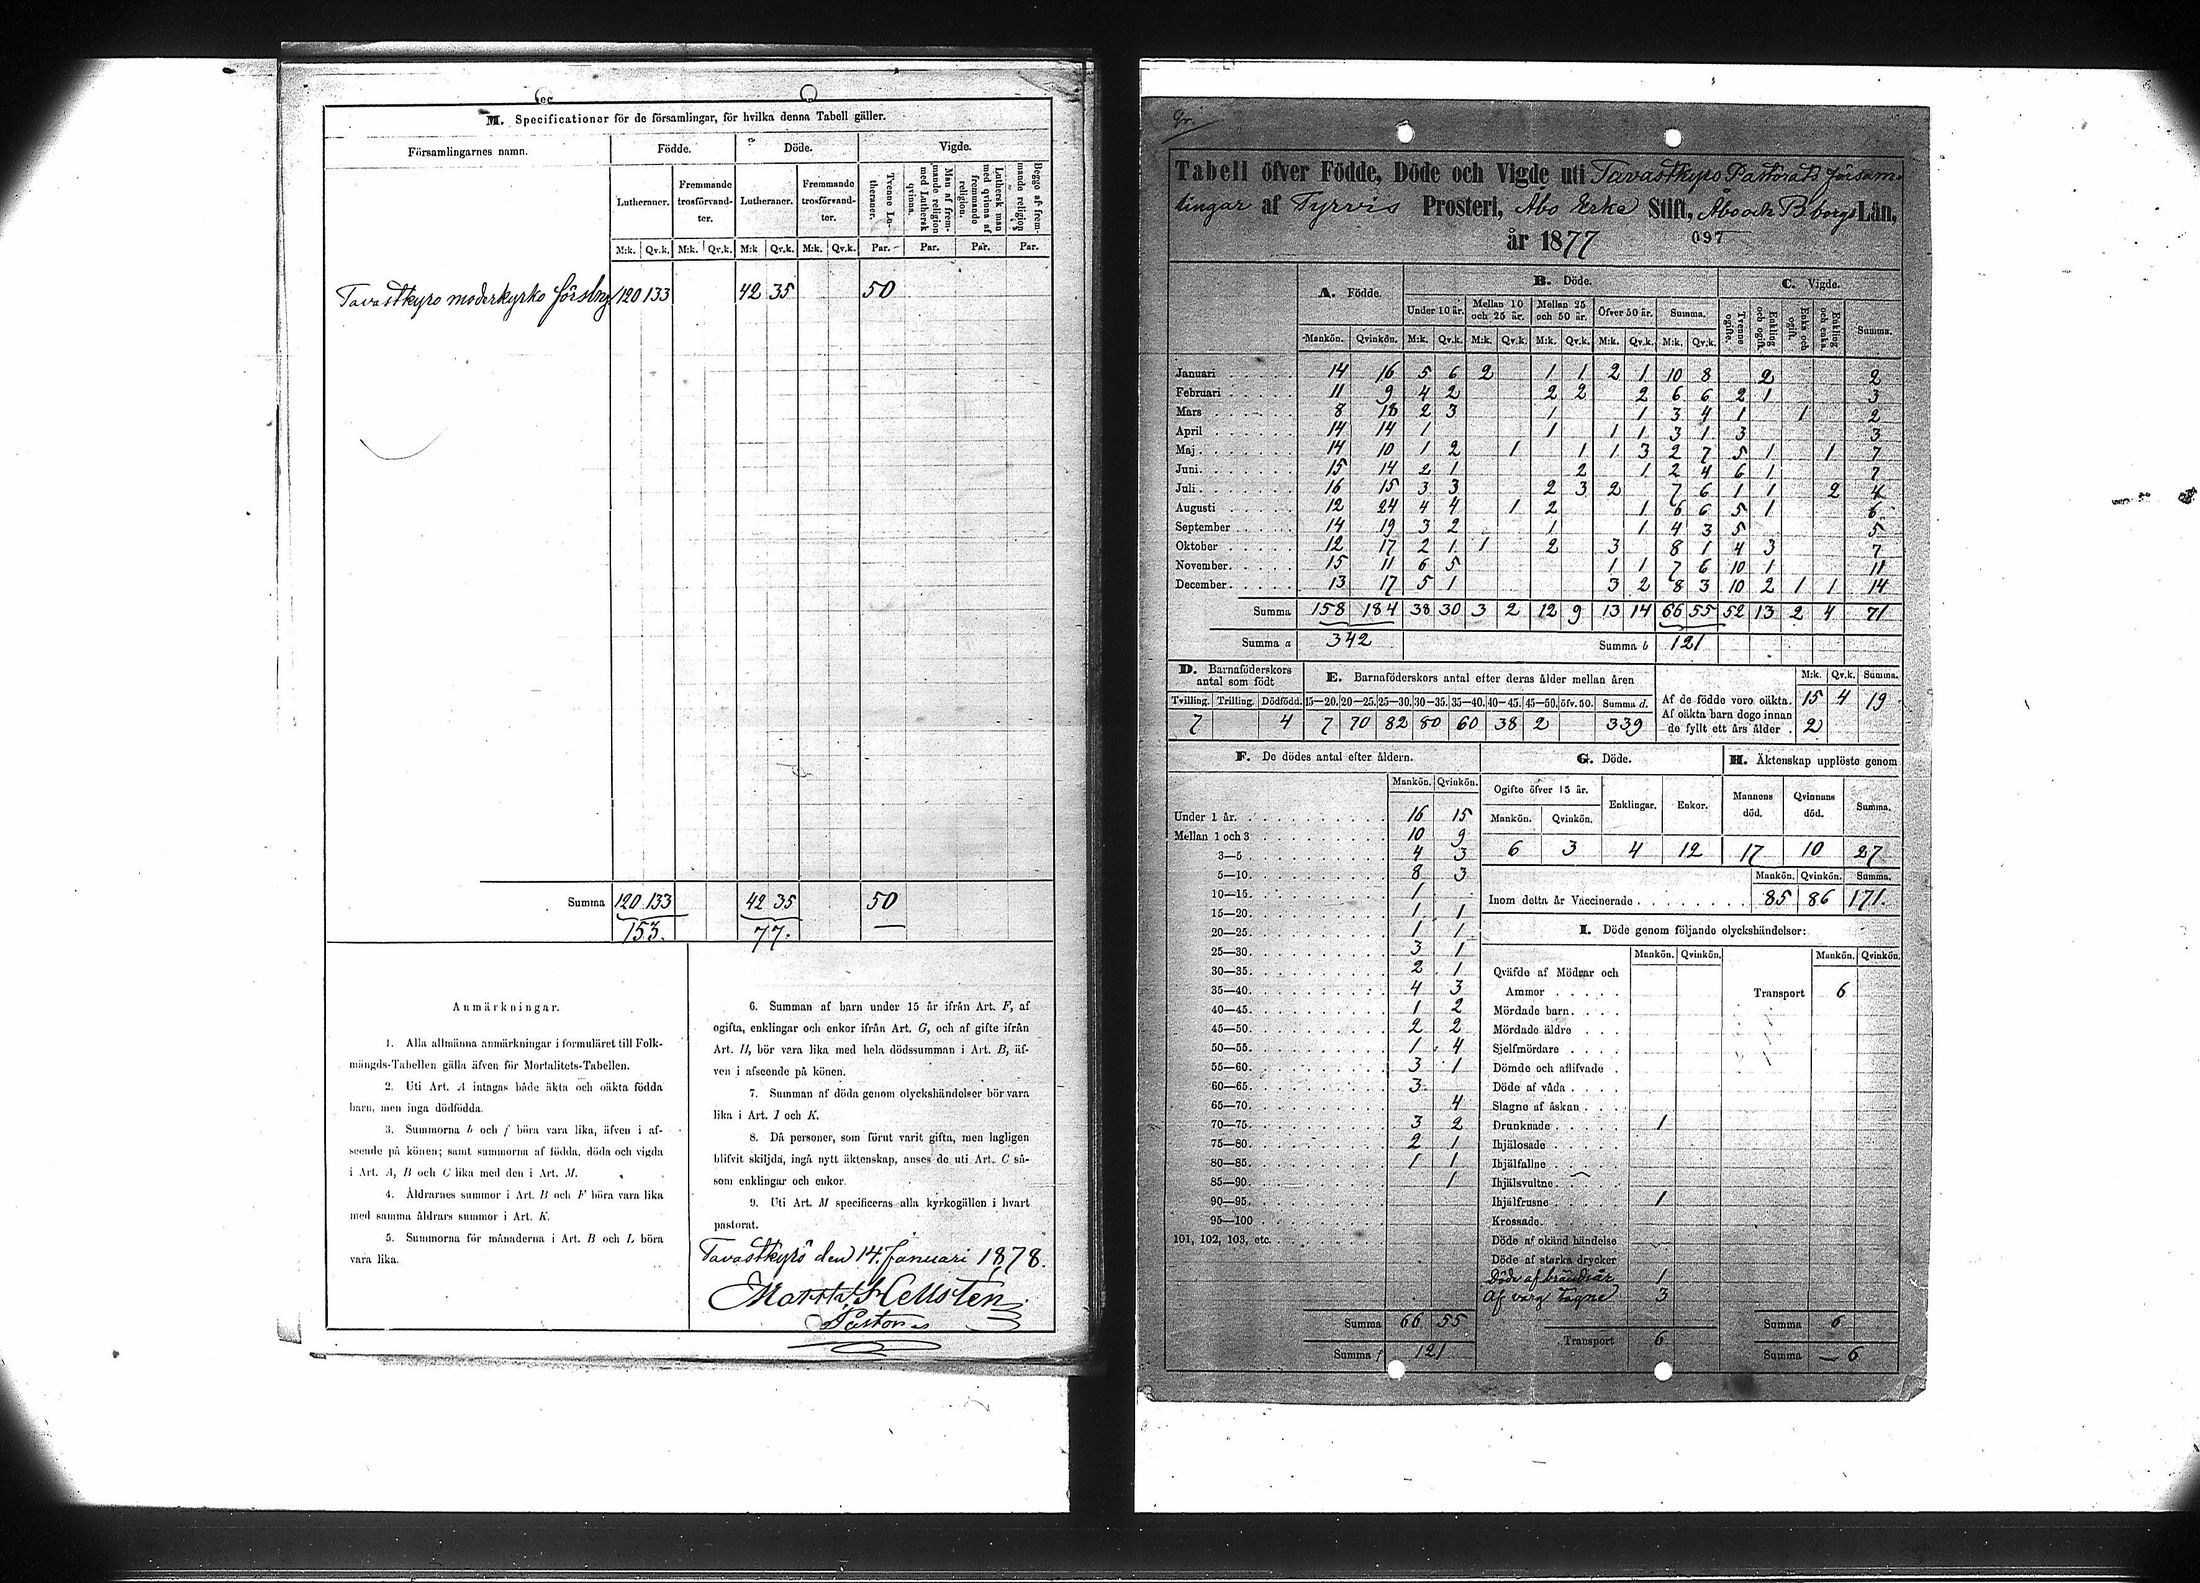 M. Specificationer för de församlingar, för hvilka denna Tabell gäller.
Församlingarnes namn. Födde. Döde. Vigde.
Lutheraner. Fremmande trosförvandter. Lutheraner. Fremmande trosförvandter. Tvenne Lutheraner. Man af fremmande religion med Luthersk qvinna. Luthersk man med qvinna af fremmande religion. Begge af fremmande religion
M:k. Qv.k. M:k. Qv.k. M:k Qv.k. M:k. Qv.k. Par. Par. Par. Par.
Tavastkyro moderkyrko församlg 120 133 42 35 50
Summa 120 133 42 35 50
153. 77.
Anmärkningar.
1. Alla allmänna anmärkningar i formuläret till Folk-
mängds-Tabellen gälla äfven för Mortalitets-Tabellen.
2. Uti Art. A intagas både äkta och oäkta födda
barn, men inga dödfödda.
3. Summorna b och f böra vara lika, äfven i af-
seende på könen; samt summorna af födda, döda och vigda
i Art. A, B och C lika med den i Art. M.
4. Åldrarnes summor i Art. B och F böra vara lika
med samma åldrars summor i Art. K.
5. Summorna för månaderna i Art. B och L böra
vara lika.
6. Summan af barn under 15 år ifrån Art. F, af
ogifta, enklingar och enkor ifrån Art. G, och af gifte ifrån
Art. H, bör vara lika med hela dödssumman i Art. B, äf-
ven i afseende på könen.
7. Summan af döda genom olyckshändelser bör vara
lika i Art. I och K.
8. Då personer, som förut varit gifta, men lagligen
blifvit skiljda, ingå nytt äktenskap, anses de uti Art. C så-
som enklingar och enkor.
9. Uti Art. M specificeras alla kyrkogällen i hvart
pastorat.
Tavastkyrö den 14. Januari 1878.
Hellsten
Pastor
Tabell öfver Födde, Döde och Vigde uti Tavastkyro Pastorats försam-
lingar af Tyrvis Prosteri, Åbo Erke Stift, Åbo och B.borgs Län,
år 1877 097
A. Födde. B. Döde. C. Vigde.
Under 10 år. Mellan 10 och 25 år. Mellan 25 och 50 år. Öfver 50 år. Summa. Tvenne ogifte. Enkling och ogift. Enka och ogift. Enkling och enka. Summa.
Mankön. Qvinkön. M:k. Qv.k. M:k. Qv.k. M:k. Qv.k. M:k. Qv.k. M:k. Qv.k.
Januari 14 16 5 6 2 1 1 2 1 10 8 2 2
Februari 11 9 4 2 2 2 2 6 6 2 1 3
Mars 8 18 2 3 1 1 3 4 1 1 2
April 14 14 1 1 1 1 3 1 3 3
Maj 14 10 1 2 1 1 1 3 2 7 5 1 1 7
Juni 15 14 2 1 2 1 2 4 6 1 7
Juli 16 15 3 3 2 3 2 7 6 1 1 2 4
Augusti 12 24 4 4 1 2 1 6 6 5 1 6
September 14 19 3 2 1 1 4 3 5 5
Oktober 12 17 2 1 1 2 3 8 1 4 3 7
November 15 11 6 5 1 1 7 6 10 1 11
December 13 17 5 1 3 2 8 3 10 2 1 1 14
Summa 158 184 38 30 3 2 12 9 13 14 66 55 52 13 2 4 71
Summa a 342 Summa b 121
D. Barnaföderskors antal som födt
Tvilling. Trilling. Dödfödd.
7 4
E. Barnaföderskors antal efter deras ålder mellan åren
15—20. 20—25. 25—30. 30—35. 35—40. 40—45. 45—50. öfv. 50. Summa d.
7 70 82 80 60 38 2 339
M:k. Qv.k. Summa.
Af de födde voro oäkta. 15 4 19
Af oäkta barn dogo innan
de fyllt ett års ålder. 2
F. De dödes antal efter åldern.
Mankön. Qvinkön.
Under 1 år. 16 15
Mellan 1 och 3 10 9
3—5 4 3
5—10. 8 3
10—15. 1
15—20. 1 1
20—25. 1 1
25—30. 3 1
30—35. 2 1
35—40. 4 3
40—45. 1 2
45—50. 2 2
50—55. 1 4
55—60. 3 1
60—65. 3
65—70. 4
70—75. 3 2
75—80. 2 1
80—85. 1 1
85—90. 1
90—95.
95—100
101, 102, 103, etc.
Summa 66 55
Summa f 121
G. Döde.
Ogifte öfver 15 år. Enklingar. Enkor.
Mankön. Qvinkön.
6 3 4 12
H. Äktenskap upplöste genom
Mannens död. Qvinnans död. Summa.
17 10 27
Mankön. Qvinkön. Summa.
Inom detta år Vaccinerade 85 86 171.
I. Döde genom följande olyckshändelser:
Mankön. Qvinkön. Mankön. Qvinkön.
Qväfde af Mödrar och
Ammor Transport 6
Mördade barn.
Mördade äldre
Sjelfmördare
Dömde och aflifvade
Döde af våda
Slagne af åskan
Drunknade 1
Ihjälosade
Ihjälfallne
Ihjälsvultne
Ihjälfrusne 1
Krossade.
Döde af okänd händelse
Döde af starka drycker
Döde af brändsår 1
Af varg tagne 3
Summa 6
Transport 6
Summa 6